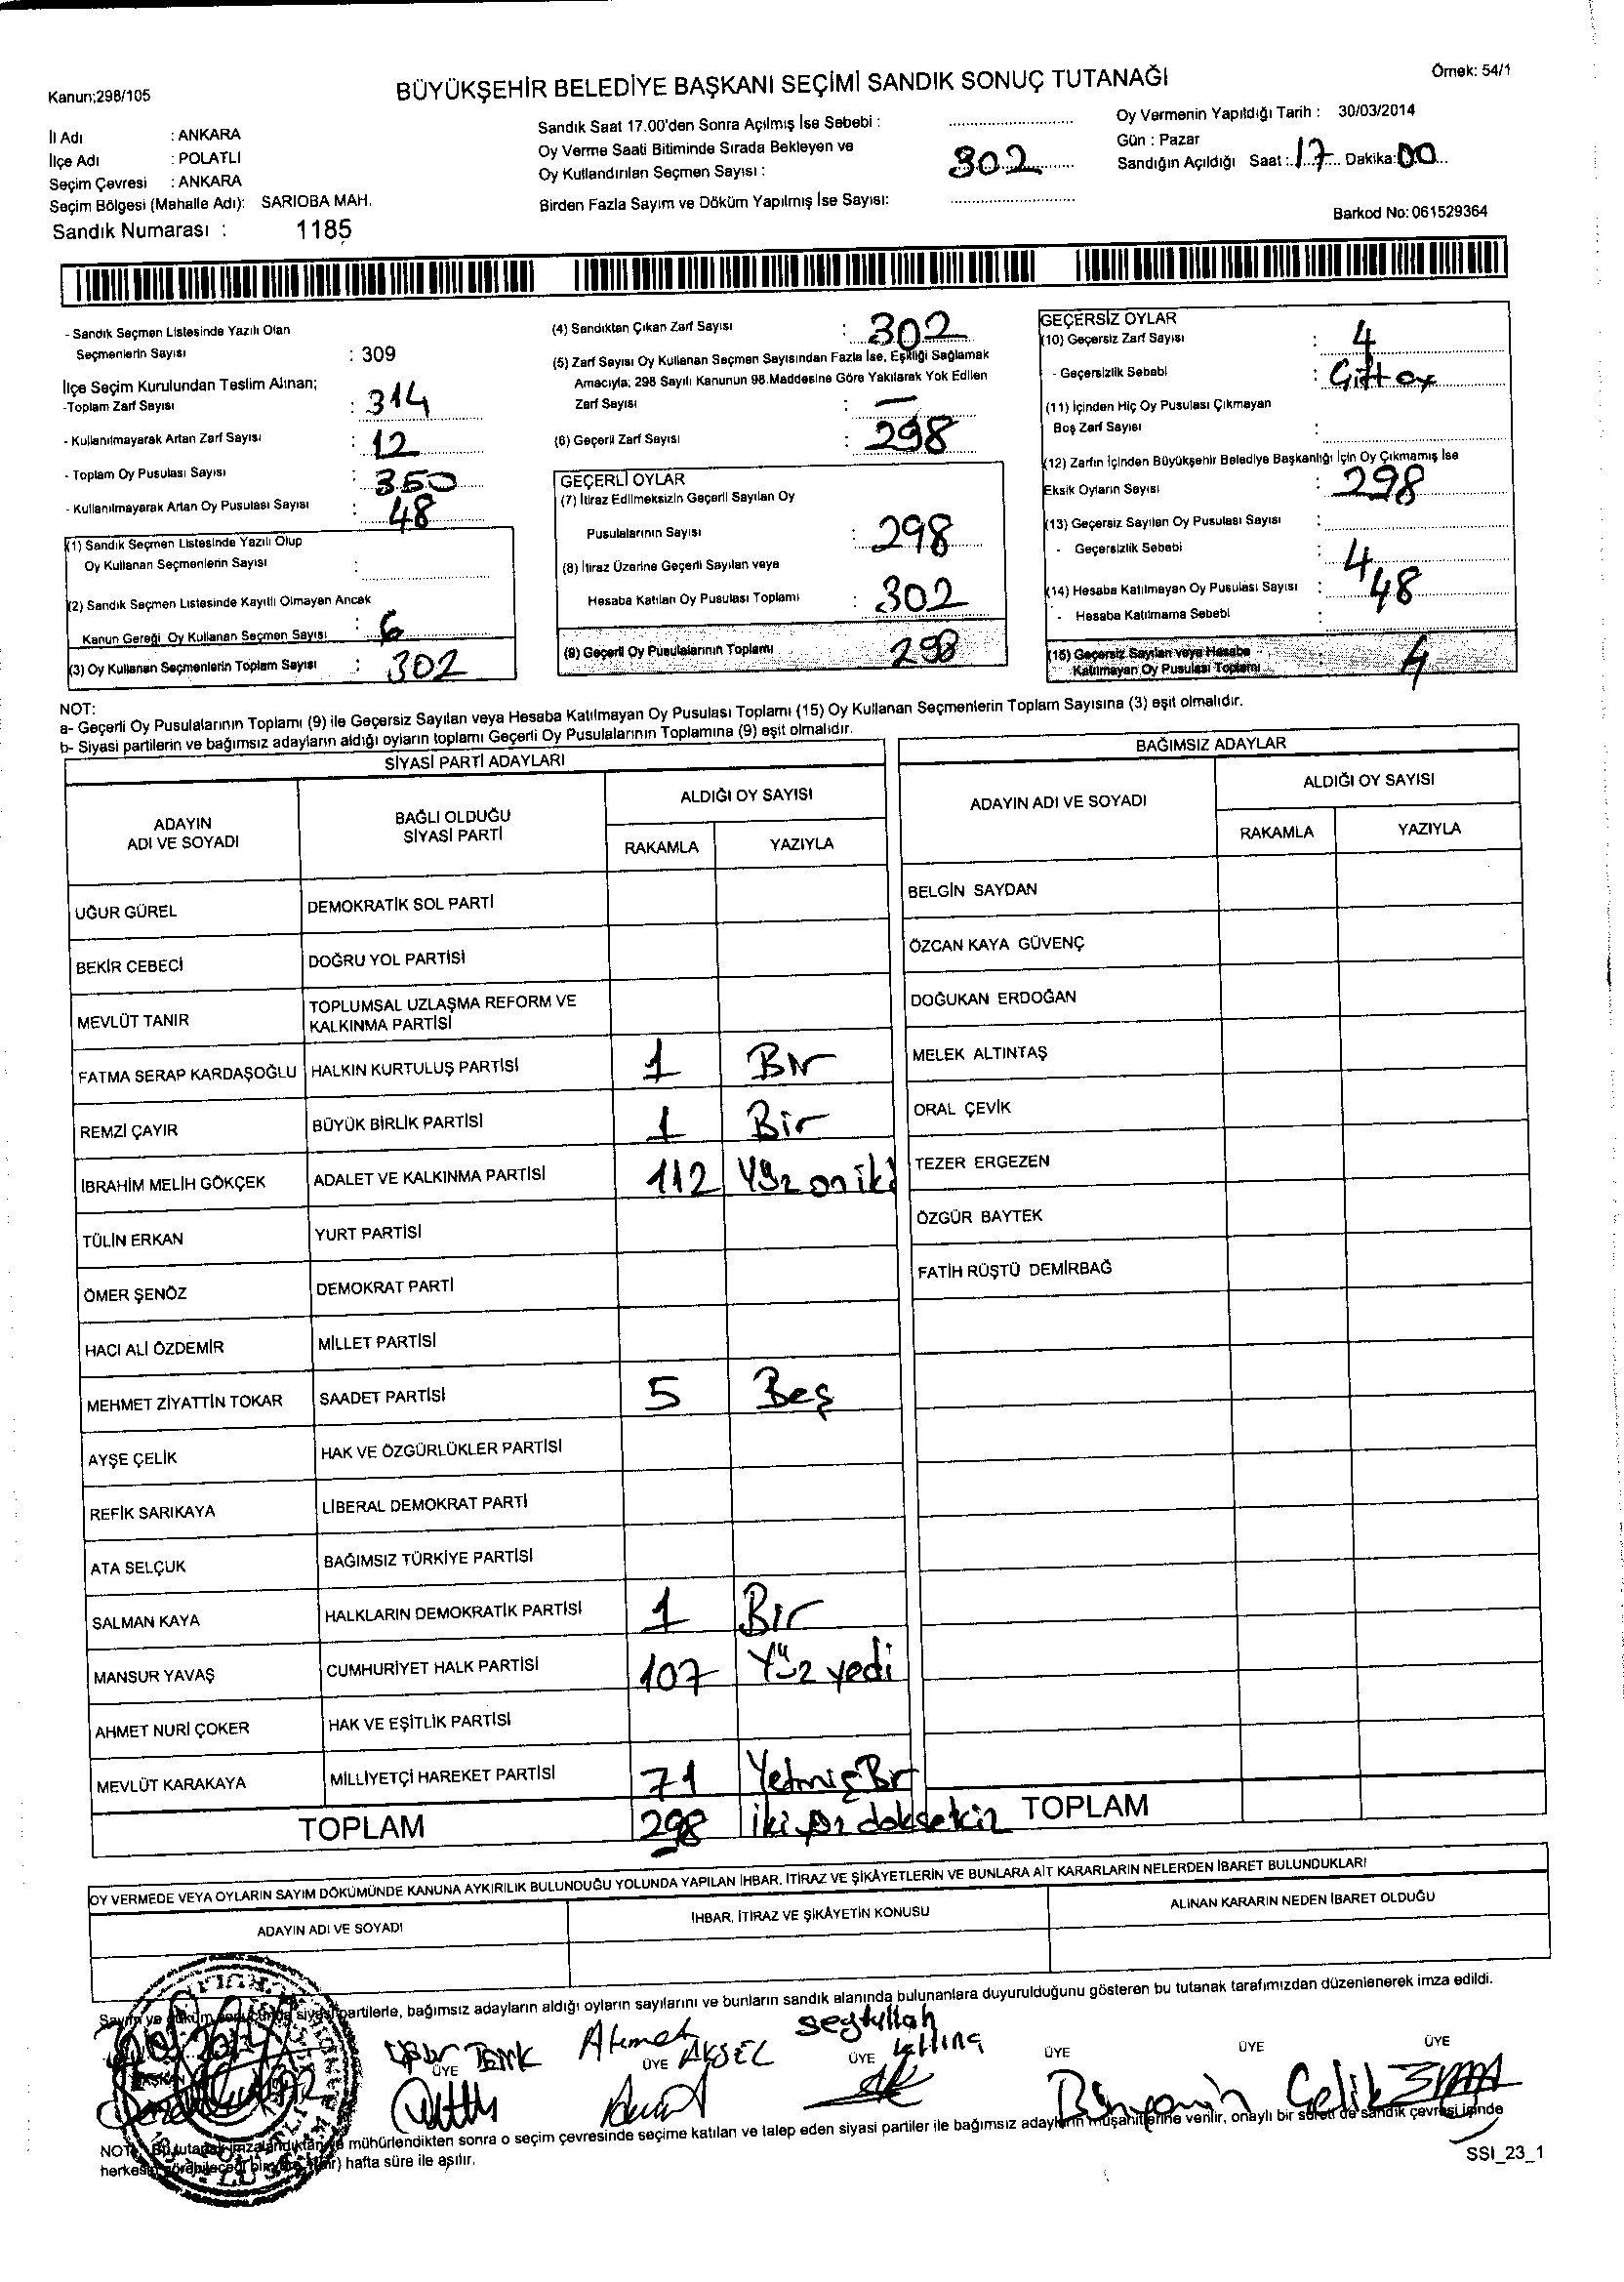 Kanun;298/105
BÜYÜKŞEHİR BELEDİYE BAŞKANI SEÇİMİ SANDIK SONUÇ TUTANAĞI
Örnek: 54/1
İl Adı : ANKARA
İlçe Adı : POLATLI
Seçim Çevresi : ANKARA
Seçim Bölgesi (Mahalle Adı): SARIOBA MAH.
Sandık Numarası : 1185
Sandık Saat 17.00'den Sonra Açılmış İse Sebebi :
Oy Verme Saati Bitiminde Sırada Bekleyen ve
Oy Kullandırılan Seçmen Sayısı : 302
Birden Fazla Sayım ve Döküm Yapılmış İse Sayısı:
Oy Vermenin Yapıldığı Tarih : 30/03/2014
Gün : Pazar
Sandığın Açıldığı Saat : 17 Dakika: 00
Barkod No: 061529364
- Sandık Seçmen Listesinde Yazılı Olan
Seçmenlerin Sayısı : 309
İlçe Seçim Kurulundan Teslim Alınan;
-Toplam Zarf Sayısı : 314
- Kullanılmayarak Artan Zarf Sayısı : 12
- Toplam Oy Pusulası Sayısı : 350
- Kullanılmayarak Artan Oy Pusulası Sayısı : 48
(1) Sandık Seçmen Listesinde Yazılı Olup
Oy Kullanan Seçmenlerin Sayısı :
(2) Sandık Seçmen Listesinde Kayıtlı Olmayan Ancak
Kanun Gereği Oy Kullanan Seçmen Sayısı : 6
(3) Oy Kullanan Seçmenlerin Toplam Sayısı : 302
(4) Sandıktan Çıkan Zarf Sayısı : 302
(5) Zarf Sayısı Oy Kullanan Seçmen Sayısından Fazla İse, Eşitliği Sağlamak
Amacıyla; 298 Sayılı Kanunun 98.Maddesine Göre Yakılarak Yok Edilen
Zarf Sayısı : —
(6) Geçerli Zarf Sayısı : 298
GEÇERLİ OYLAR
(7) İtiraz Edilmeksizin Geçerli Sayılan Oy
Pusulalarının Sayısı : 298
(8) İtiraz Üzerine Geçerli Sayılan veya
Hesaba Katılan Oy Pusulası Toplamı : 302
(9) Geçerli Oy Pusulalarının Toplamı 298
GEÇERSİZ OYLAR
(10) Geçersiz Zarf Sayısı : 4
- Geçersizlik Sebebi : Çift oy
(11) İçinden Hiç Oy Pusulası Çıkmayan
Boş Zarf Sayısı :
(12) Zarfın İçinden Büyükşehir Belediye Başkanlığı İçin Oy Çıkmamış İse
Eksik Oyların Sayısı : 298
(13) Geçersiz Sayılan Oy Pusulası Sayısı :
- Geçersizlik Sebebi : 4
(14) Hesaba Katılmayan Oy Pusulası Sayısı : 48
- Hesaba Katılmama Sebebi :
(15) Geçersiz Sayılan veya Hesaba
Katılmayan Oy Pusulası Toplamı : 4
NOT:
a- Geçerli Oy Pusulalarının Toplamı (9) ile Geçersiz Sayılan veya Hesaba Katılmayan Oy Pusulası Toplamı (15) Oy Kullanan Seçmenlerin Toplam Sayısına (3) eşit olmalıdır.
b- Siyasi partilerin ve bağımsız adayların aldığı oyların toplamı Geçerli Oy Pusulalarının Toplamına (9) eşit olmalıdır.
SİYASİ PARTİ ADAYLARI
ADAYIN ADI VE SOYADI
BAĞLI OLDUĞU SİYASİ PARTİ
ALDIĞI OY SAYISI
RAKAMLA YAZIYLA
UĞUR GÜREL DEMOKRATİK SOL PARTİ
BEKİR CEBECİ DOĞRU YOL PARTİSİ
MEVLÜT TANIR TOPLUMSAL UZLAŞMA REFORM VE KALKINMA PARTİSİ
FATMA SERAP KARDAŞOĞLU HALKIN KURTULUŞ PARTİSİ 1 Bir
REMZİ ÇAYIR BÜYÜK BİRLİK PARTİSİ 1 Bir
İBRAHİM MELİH GÖKÇEK ADALET VE KALKINMA PARTİSİ 112 Yüz oniki
TÜLİN ERKAN YURT PARTİSİ
ÖMER ŞENÖZ DEMOKRAT PARTİ
HACI ALİ ÖZDEMİR MİLLET PARTİSİ
MEHMET ZİYATTİN TOKAR SAADET PARTİSİ 5 Beş
AYŞE ÇELİK HAK VE ÖZGÜRLÜKLER PARTİSİ
REFİK SARIKAYA LİBERAL DEMOKRAT PARTİ
ATA SELÇUK BAĞIMSIZ TÜRKİYE PARTİSİ
SALMAN KAYA HALKLARIN DEMOKRATİK PARTİSİ 1 Bir
MANSUR YAVAŞ CUMHURİYET HALK PARTİSİ 107 Yüz yedi
AHMET NURİ ÇOKER HAK VE EŞİTLİK PARTİSİ
MEVLÜT KARAKAYA MİLLİYETÇİ HAREKET PARTİSİ 71 Yetmiş Bir
TOPLAM 298 iki yüz doksekiz
BAĞIMSIZ ADAYLAR
ADAYIN ADI VE SOYADI
ALDIĞI OY SAYISI
RAKAMLA YAZIYLA
BELGİN SAYDAN
ÖZCAN KAYA GÜVENÇ
DOĞUKAN ERDOĞAN
MELEK ALTINTAŞ
ORAL ÇEVİK
TEZER ERGEZEN
ÖZGÜR BAYTEK
FATİH RÜŞTÜ DEMİRBAĞ
TOPLAM
OY VERMEDE VEYA OYLARIN SAYIM DÖKÜMÜNDE KANUNA AYKIRILIK BULUNDUĞU YOLUNDA YAPILAN İHBAR, İTİRAZ VE ŞİKÂYETLERİN VE BUNLARA AİT KARARLARIN NELERDEN İBARET BULUNDUKLARI
ADAYIN ADI VE SOYADI
İHBAR, İTİRAZ VE ŞİKÂYETİN KONUSU
ALINAN KARARIN NEDEN İBARET OLDUĞU
Sayım ve döküm sonucunda siyasi partilerle, bağımsız adayların aldığı oyların sayılarını ve bunların sandık alanında bulunanlara duyurulduğunu gösteren bu tutanak tarafımızdan düzenlenerek imza edildi.
Ahmet AKSEL
BAŞKAN ÜYE ÜYE ÜYE ÜYE ÜYE ÜYE
Bünyamin Çelik
NOT: Bu tutanak imzalandıktan ve mühürlendikten sonra o seçim çevresinde seçime katılan ve talep eden siyasi partiler ile bağımsız adayların müşahitlerine verilir, onaylı bir sureti de sandık çevresi içinde
herkesin görebileceği bir yere (bir) hafta süre ile asılır.
SSI_23_1